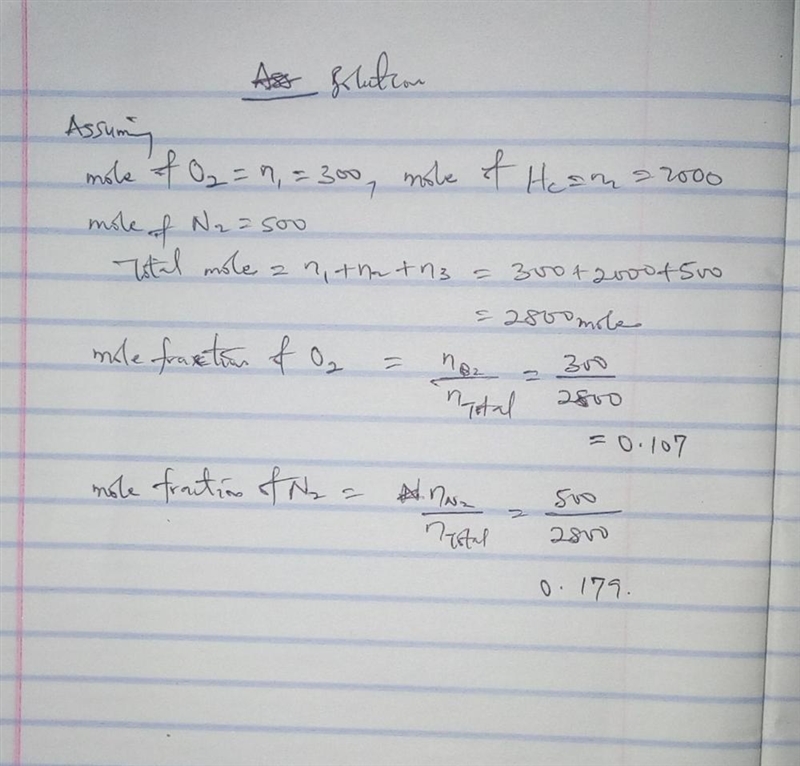 solution
Assuming
mole of O₂ = n₁ = 300, mole of He = n₂ = 2000
mole of N₂ = 500
Total mole = n₁ + n₂ + n₃ = 300 + 2000 + 500
= 2800 mole
mole fraction of O₂ = nO₂/nTotal = 300/2800
= 0.107
mole fraction of N₂ = nN₂/nTotal = 500/2800
0.179.